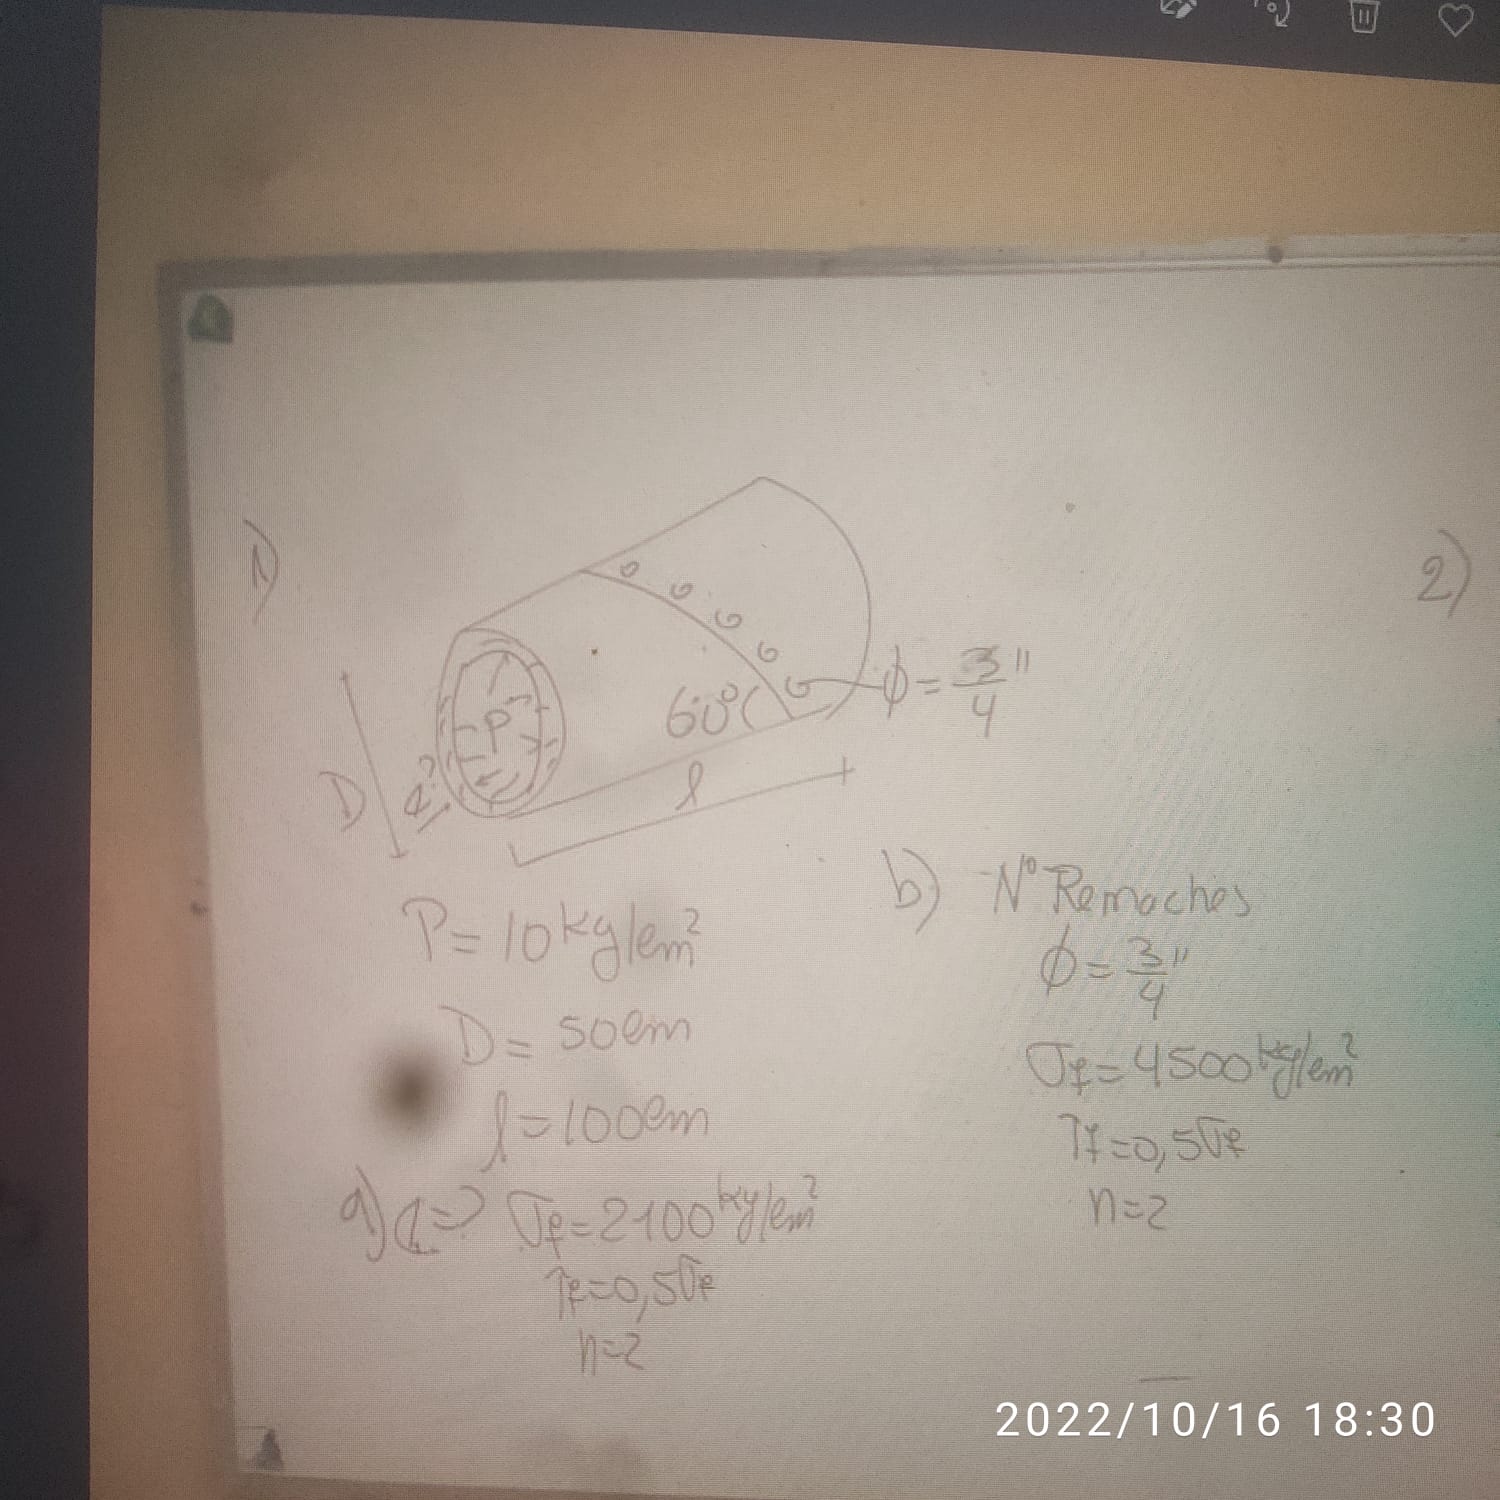 1)
2)
P
D
e?
60°
l
φ = 3/4"
P = 10 kg/cm²
D = 50cm
l = 100cm
a) e=? σf = 2100 kg/cm²
τf = 0,5σf
n=2
b) N° Remaches
φ = 3/4"
σf = 4500 kg/cm²
τf = 0,5σf
n=2
2022/10/16 18:30